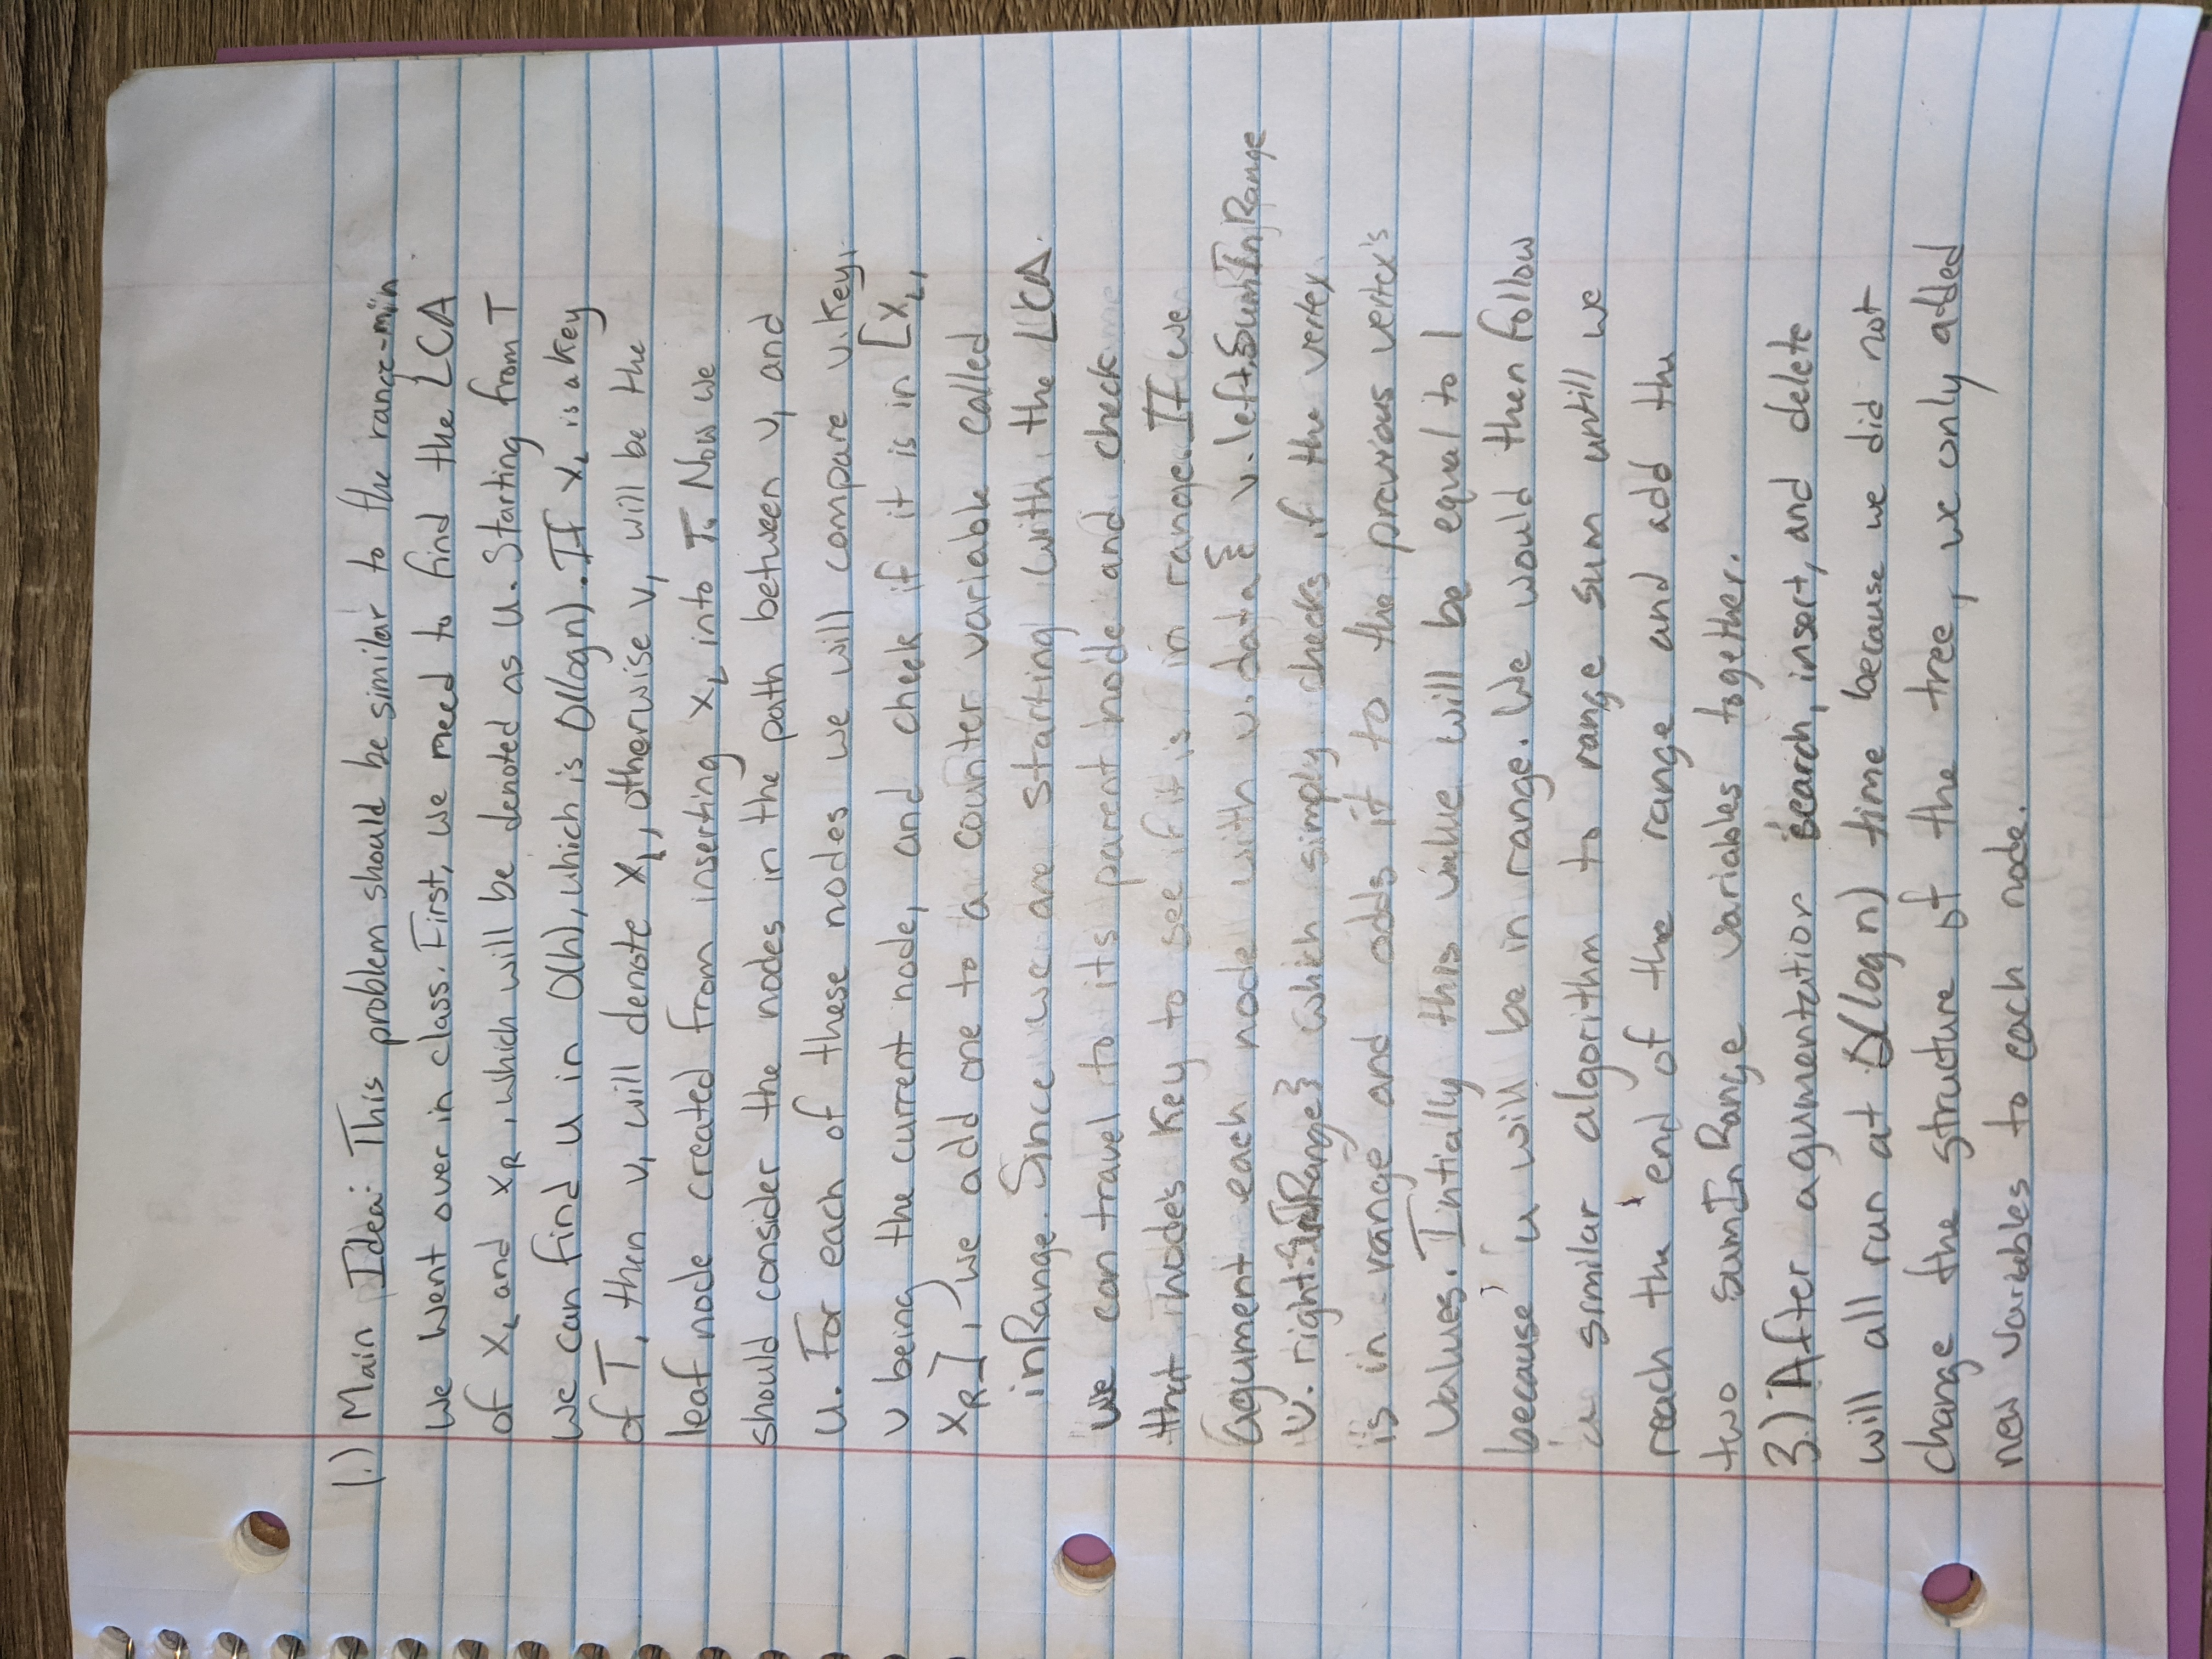 1.) Main Idea: This problem should be similar to the range-min
we went over in class. First, we need to find the LCA
of x_L and x_R, which will be denoted as u. Starting from T
we can find u in O(h), which is O(log n). If x_L is a key
of T, then v_1 will denote x_L, otherwise v_1 will be the
leaf node created from inserting x_L into T. Now we
should consider the nodes in the path between v_1 and
u. For each of these nodes we will compare v.key,
v being the current node, and check if it is in [x_L,
x_R], we add one to a counter variable called
inRange. Since we are starting with the LCA
we can travel to its parent node and check
that nodes key to see if it is in range. If we
agument each node with v.data { v.left.SumInRange
v.right. InRange} which simply checks if the vertex
is in range and adds it to the previous vertex's
values. Intially this value will be equal to 1
because u will be in range. We would then follow
a similar algorithm to range sum untill we
reach the end of the range and add the
two sumInRange variables together.
3.) After agumentation search, insert, and delete
will all run at O(log n) time because we did not
change the structure of the tree, we only added
new variables to each node.